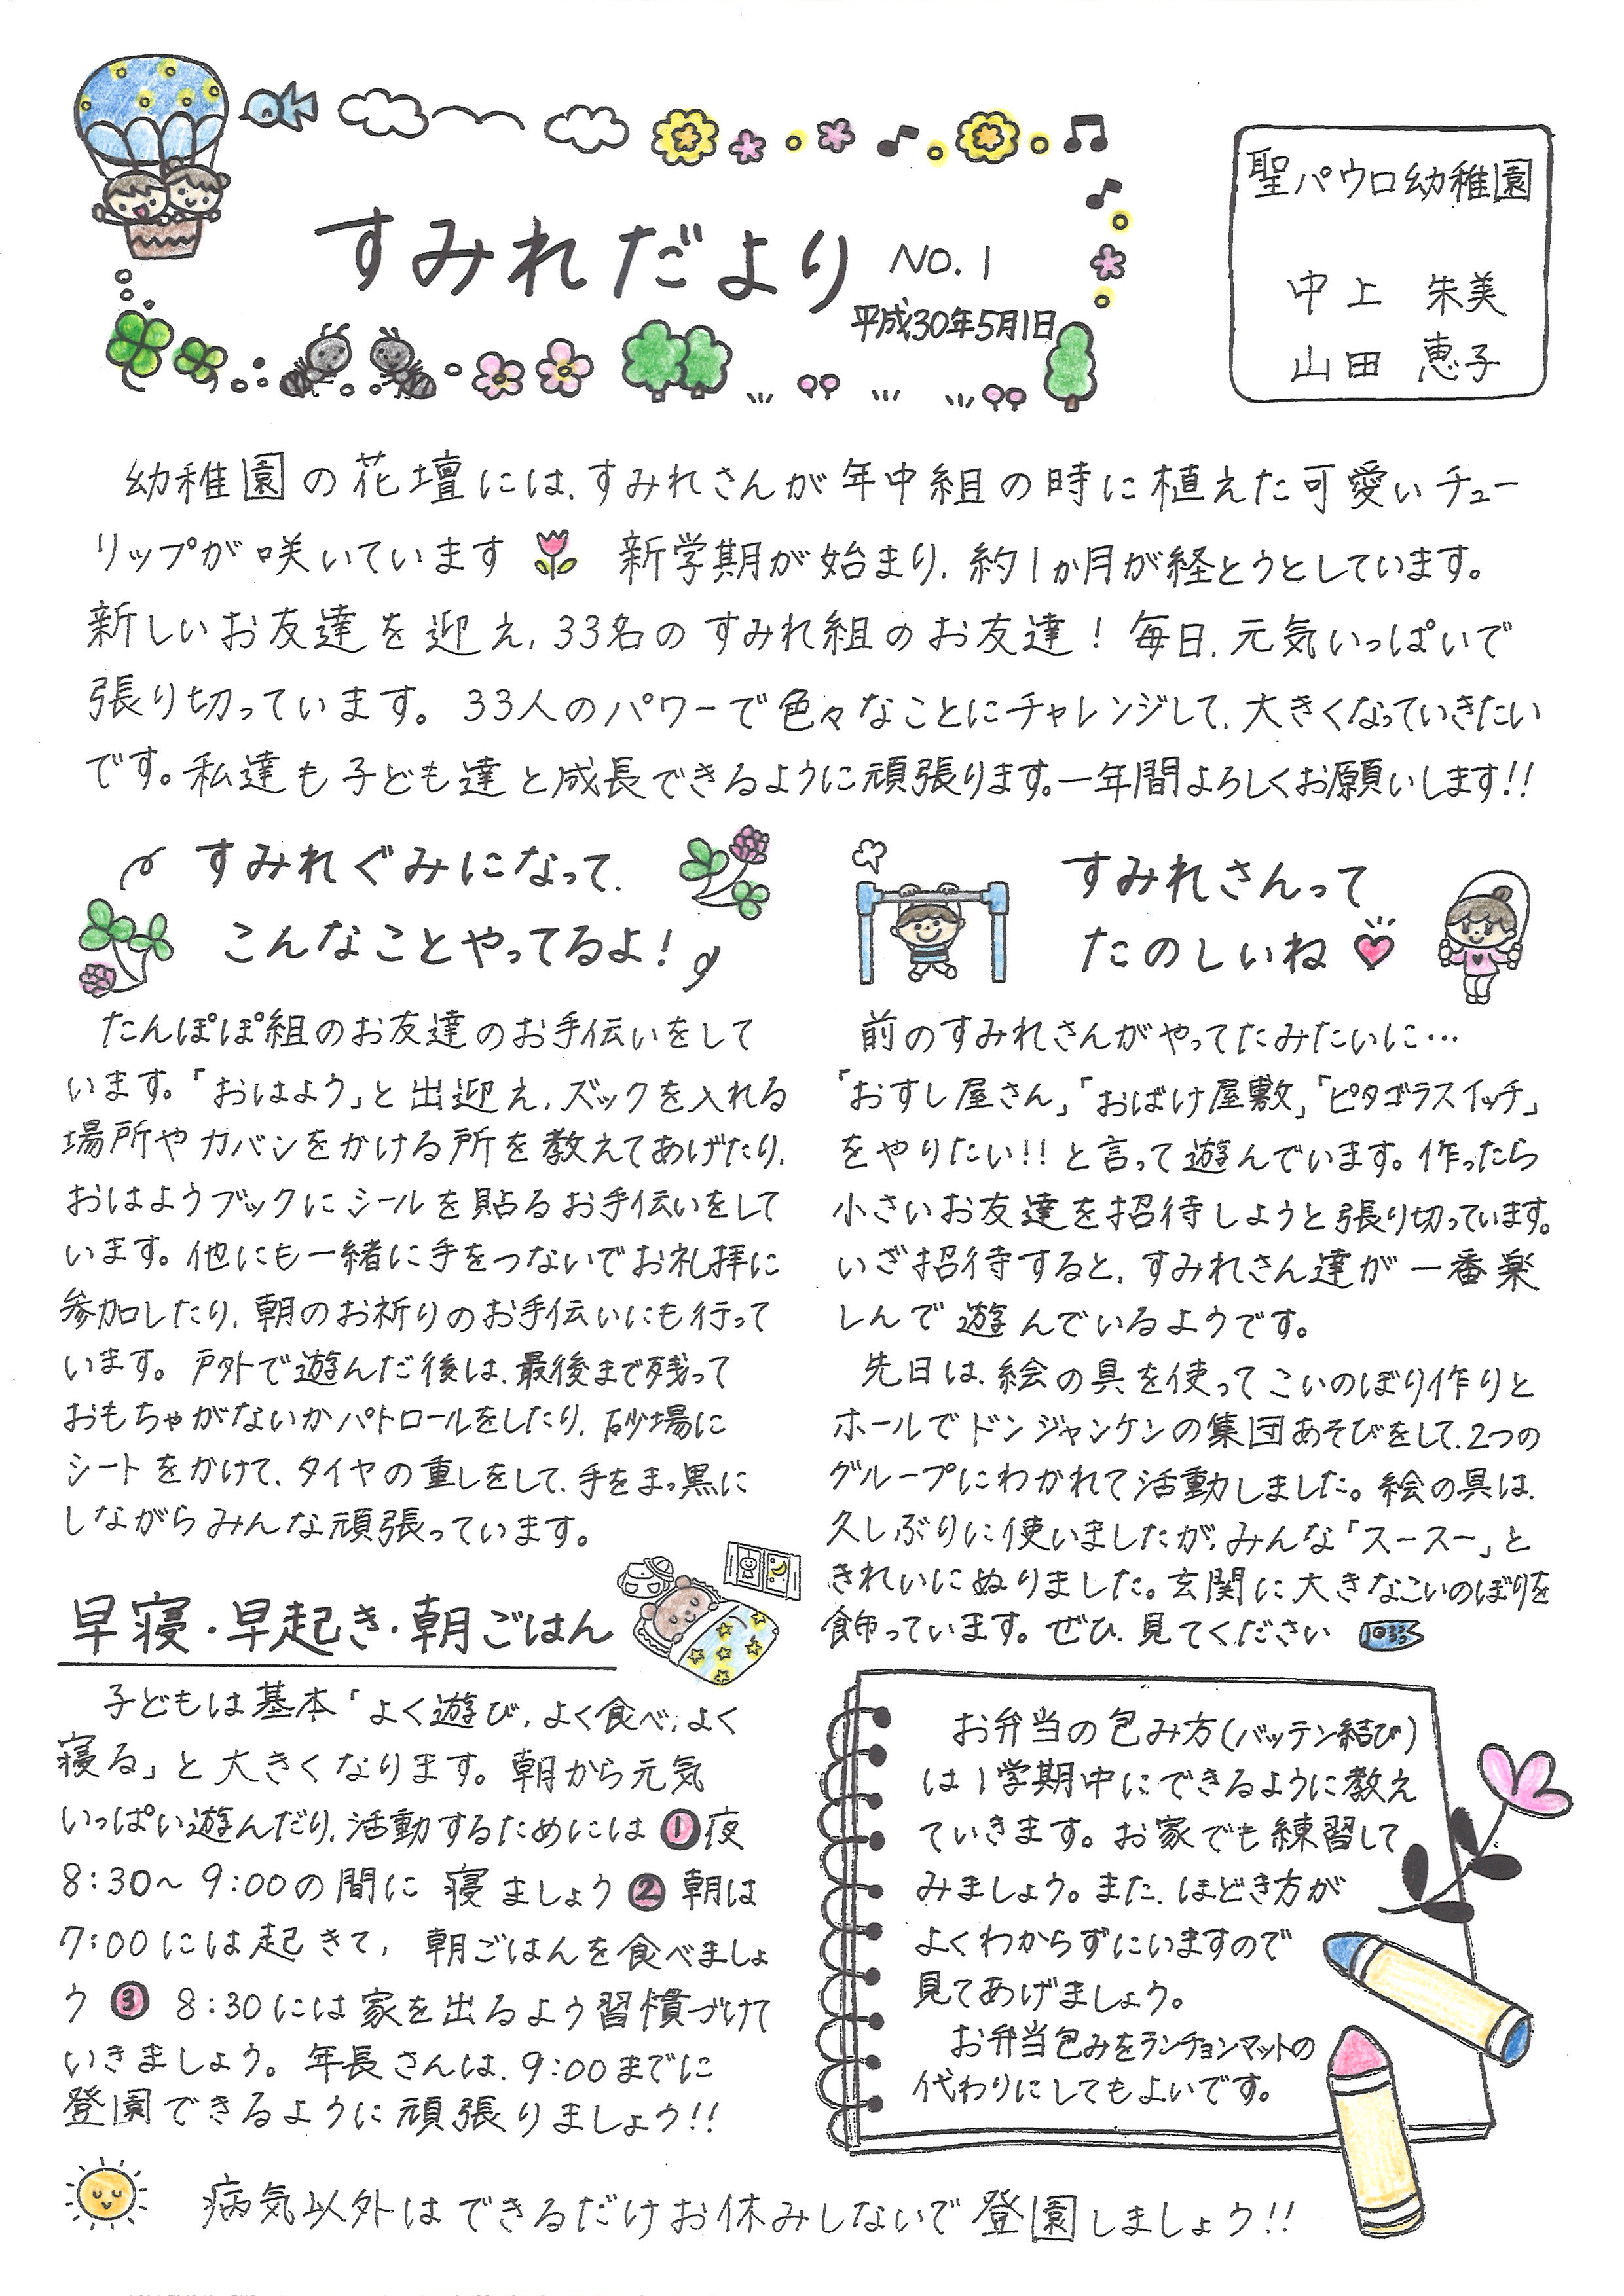 すみれだより NO.1
平成30年5月1日
聖パウロ幼稚園
中上 朱美
山田 恵子
幼稚園の花壇には、すみれさんが年中組の時に植えた可愛いチュー
リップが咲いています 新学期が始まり、約1か月が経とうとしています。
新しいお友達を迎え、33名のすみれ組のお友達！毎日、元気いっぱいで
張り切っています。33人のパワーで色々なことにチャレンジして、大きくなっていきたい
です。私達も子ども達と成長できるように頑張ります。一年間よろしくお願いします!!
すみれぐみになって、
こんなことやってるよ！
たんぽぽ組のお友達のお手伝いをして
います。「おはよう」と出迎え、ズックを入れる
場所やカバンをかける所を教えてあげたり、
おはようブックにシールを貼るお手伝いをして
います。他にも一緒に手をつないでお礼拝に
参加したり、朝のお祈りのお手伝いにも行って
います。戸外で遊んだ後は、最後まで残って
おもちゃがないかパトロールをしたり、砂場に
シートをかけて、タイヤの重しをして、手をまっ黒に
しながらみんな頑張っています。
早寝・早起き・朝ごはん
子どもは基本「よく遊び、よく食べ、よく
寝る」と大きくなります。朝から元気
いっぱい遊んだり、活動するためには ① 夜
8:30～9:00の間に寝ましょう ② 朝は
7:00には起きて、朝ごはんを食べましょ
う ③ 8:30には家を出るよう習慣づけて
いきましょう。年長さんは、9:00までに
登園できるように頑張りましょう!!
すみれさんって
たのしいね
前のすみれさんがやってたみたいに…
「おすし屋さん」「おばけ屋敷」「ピタゴラスイッチ」
をやりたい!!と言って遊んでいます。作ったら
小さいお友達を招待しようと張り切っています。
いざ招待すると、すみれさん達が一番楽
しんで遊んでいるようです。
先日は、絵の具を使ってこいのぼり作りと
ホールでドンジャンケンの集団あそびをして、2つの
グループにわかれて活動しました。絵の具は、
久しぶりに使いましたが、みんな「スースー」と
きれいにぬりました。玄関に大きなこいのぼりを
飾っています。ぜひ、見てください
お弁当の包み方(バッテン結び)
は1学期中にできるように教え
ていきます。お家でも練習して
みましょう。また、ほどき方が
よくわからずにいますので
見てあげましょう。
お弁当包みをランチョンマットの
代わりにしてもよいです。
病気以外はできるだけお休みしないで登園しましょう!!